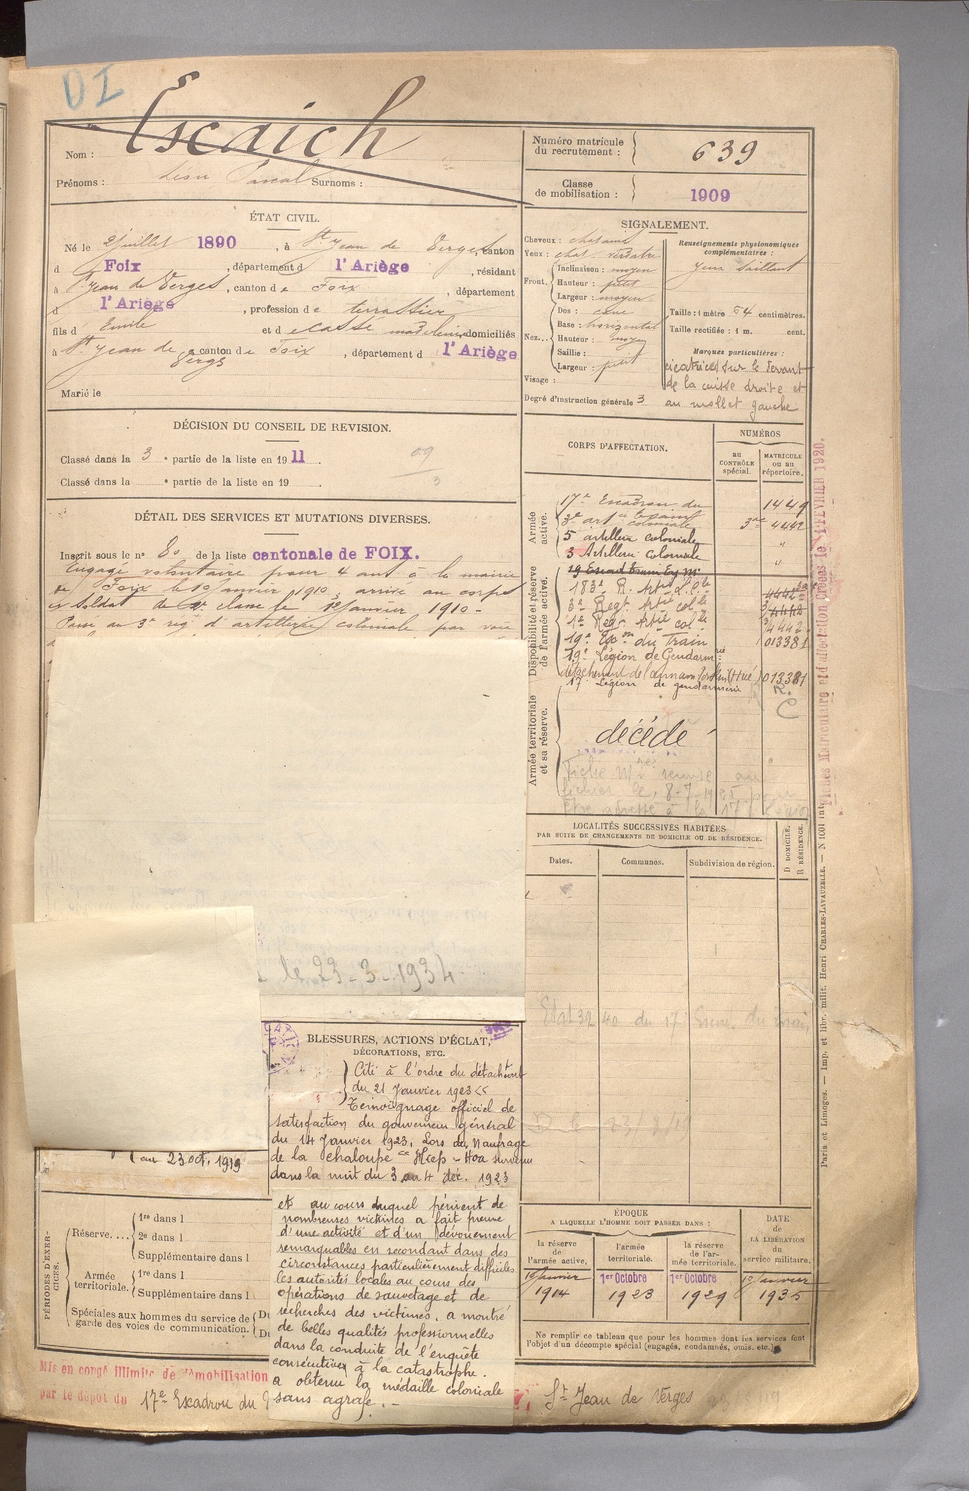 DI
Nom : Escaich
Prénoms : Jean Pascal Surnoms :
Numéro matricule du recrutement : 639
Classe de mobilisation : 1909
ÉTAT CIVIL.
Né le 2 juillet 1890, à St Jean de Verges, canton
d Foix, département d l'Ariège, résidant
à St Jean de Verges, canton de Foix, département
d l'Ariège, profession de terrassier
fils d Emile et d domiciliés
à St Jean de Verges canton de Foix, département d l'Ariège
Marié le
SIGNALEMENT.
Cheveux : chatains
Yeux : chat. verdatre
Front. Inclinaison : moyen
Hauteur : petit
Largeur : moyen
Nez... Dos : cave
Base : horizontal
Hauteur : moyen
Saillie :
Largeur : petit
Visage :
Degré d'instruction générale 3
Renseignements physionomiques complémentaires :
Yeux Saillant
Taille : 1 mètre 64 centimètres.
Taille rectifiée : 1 m. cent.
Marques particulières :
cicatrices sur le devant
de la cuisse droite et
au mollet gauche
DÉCISION DU CONSEIL DE REVISION.
Classé dans la 3e partie de la liste en 1911.
Classé dans la e partie de la liste en 19
09
3
DÉTAIL DES SERVICES ET MUTATIONS DIVERSES.
Inscrit sous le n° 80 de la liste cantonale de FOIX.
Engagé volontaire pour 4 ans à la mairie
de Foix le 10 janvier 1910, arrivé au corps
et soldat de 2e classe le 12 janvier 1910 -
Passé au 3e rég. d'artillerie coloniale par voie
le 23-3-1934
au 23 oct. 1919
CORPS D'AFFECTATION.
NUMÉROS
au CONTRÔLE spécial.
MATRICULE ou au répertoire.
Armée active.
17e Escadron du 1449
3e art coloniale 4442
5 artillerie coloniale "
3 Artillerie Coloniale "
Disponibilité et réserve de l'armée active.
19 Escad Train Eq. M.
183e R. Artie 4442
3e Regt. Artie colle 4442
1e Regt. Artie colle 4442
19e Eson du Train 013381
19e Légion de Gendarmrie
détachement de l'annam (Hué) 013381
17e Légion de gendarmerie
R.
C
Armée territoriale et sa réserve.
décédé
Fiche Mle remise au
fichier le, 8-7-1925 pour
être adressé à la 17e Légion
LOCALITÉS SUCCESSIVES HABITÉES
PAR SUITE DE CHANGEMENTS DE DOMICILE OU DE RÉSIDENCE.
Dates.
Communes.
Subdivision de région.
D DOMICILE.
R RÉSIDENCE.
Etat 32 40 du 17
D le 23/8/19
BLESSURES, ACTIONS D'ÉCLAT,
DÉCORATIONS, ETC.
Cité à l'ordre du détachement
du 21 Janvier 1923 <<
Témoignage officiel de
satisfaction du gouverneur général
du 14 Janvier 1923, Lors du Naufrage
de la chaloupe Hiep-Hoa survenu
dans la nuit du 3 au 4 déc. 1923
et au cours duquel périrent de
nombreuses victimes a fait preuve
d'une activité et d'un dévouement
remarquables en secondant dans des
circonstances particulièrement difficiles
les autorités locales au cours des
opérations de sauvetage et de
recherches des victimes, a montré
de belles qualités professionnelles
dans la conduite de l'enquête
consécutive à la catastrophe.
a obtenu la médaille coloniale
sans agrafe. -
PÉRIODES D'EXERCICES.
Réserve.... 1re dans l
2e dans l
Supplémentaire dans l
Armée territoriale. 1re dans l
Supplémentaire dans l
Spéciales aux hommes du service de garde des voies de communication.
ÉPOQUE
A LAQUELLE L'HOMME DOIT PASSER DANS :
la réserve de l'armée active,
l'armée territoriale.
la réserve de l'armée territoriale.
DATE de LA LIBÉRATION du service militaire.
10 janvier 1914
1er Octobre 1923
1er Octobre 1929
10 janvier 1935
Ne remplir ce tableau que pour les hommes dont les services font
l'objet d'un décompte spécial (engagés, condamnés, omis, etc.)
Mis en congé illimité de démobilisation
par le dépôt du 17e Escadron du
St Jean de Verges
Paris et Limoges. — Imp. et libr. milit. Henri CHARLES-LAVAUZELLE. — N° 1001